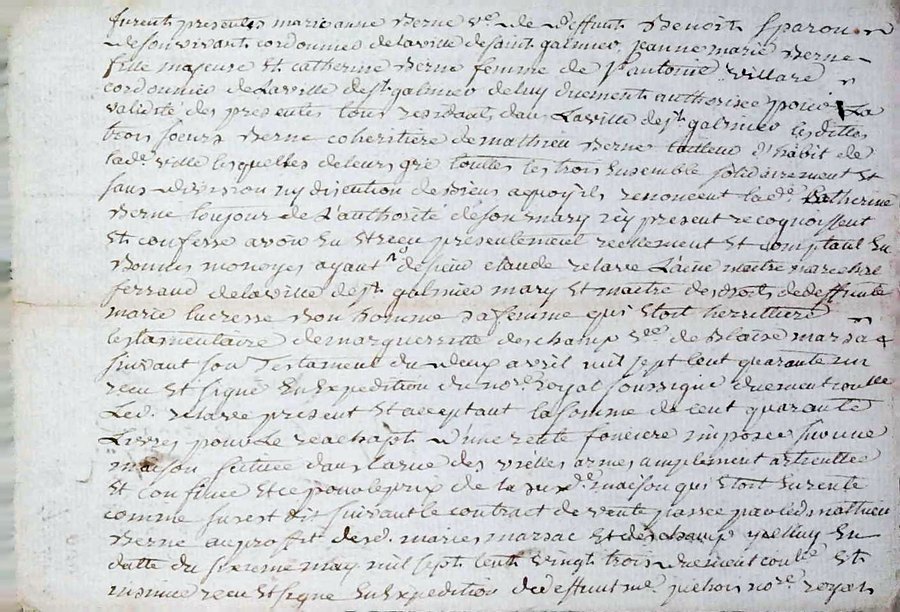 furent presentes marie anne Berne vve de deffunt Benoit Sparon
de son vivant cordonnier de la ville de saint galmier, jeanne marie Berne
fille majeure Et catherine Berne femme de Sr antoine villard
cordonnier de La ville de St galmier de luy duement authorisée pour La
validité des presentes tous residants dans La ville de St galmier lesdittes
trois soeurs Berne coheritiere de mathieu Berne tailleur d'habit de
lade ville lesquelles de leurs gré toutes les trois Ensemble solidairement Et
sans division ny discution de biens a quoy ils renoncent lade Catherine
Berne toujour de L'authorité de son mary icy present recognoissent
Et confesse avoir Eu Et receu presentement reellement Et comptant En
Bonnes monoyes ayant de sieur claude relave L'ainé maitre marechal
ferrand de la ville de St galmier mary Et maitre des droits de deffunte
marie lucresse Bon homme sa femme qui Etoit herittiere
testamentaire de marguerritte deschamp vve de Blaise marsa
suivant son Testament du deux avril mil sept cent quarante un
receu Et signé En Expedition du nore royal soussigné duement
Led. relave present Et acceptant la somme de cent quarante
Livres pour Le reachapt d'une rente fonciere imposee sur une
maison scituée dans la rue des vielles armes amplement
Et confinée Et ce pour le prix de la susde maison qui Etoit En rente
comme sus est dit suivant le contract de vente passée par led mathieu
Berne au proffit desd. mariés marsac Et deschamp En
datte du sixieme may mil sept cents vingt trois duement conlé Et
insinué receu Et signé En Expedition de deffunt me nore royal